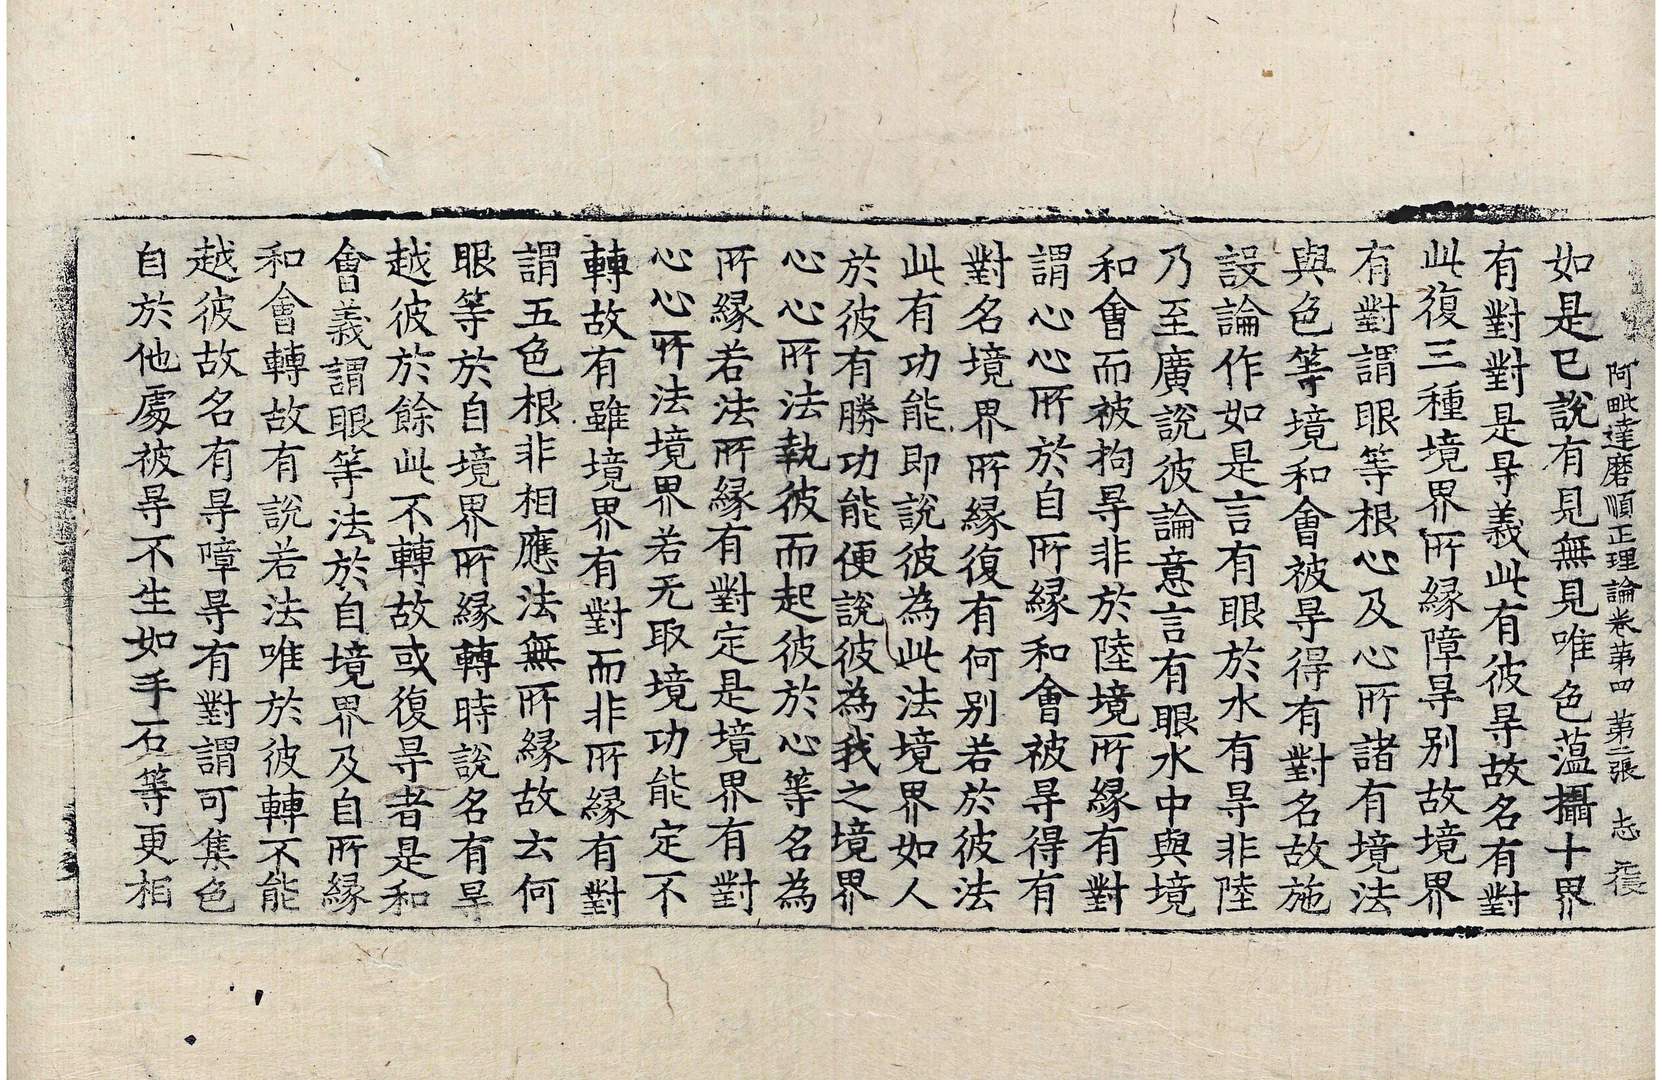 阿毗達磨順正理論卷第四 第二張 志
如是已說有見無見唯色蘊攝十界
有對對是㝵義此有彼㝵故名有對
此復三種境界所縁障㝵別故境界
有對謂眼等根心及心所諸有境法
與色等境和會被㝵得有對名故施
設論作如是言有眼於水有㝵非陸
乃至廣說彼論意言有眼水中與境
和會而被拘㝵非於陸境所縁有對
謂心心所於自所縁和會被㝵得有
對名境界所縁復有何別若於彼法
此有功能即說彼為此法境界如人
於彼有勝功能便說彼為我之境界
心心所法執彼而起彼於心等名為
所縁若法所縁有對定是境界有對
心心所法境界若无取境功能定不
轉故有雖境界有對而非所縁有對
謂五色根非相應法無所縁故云何
眼等於自境界所縁轉時說名有㝵
越彼於餘此不轉故或復㝵者是和
會義謂眼等法於自境界及自所縁
和會轉故有說若法唯於彼轉不能
越彼故名有㝵障㝵有對謂可集色
自於他處被㝵不生如手石等更相